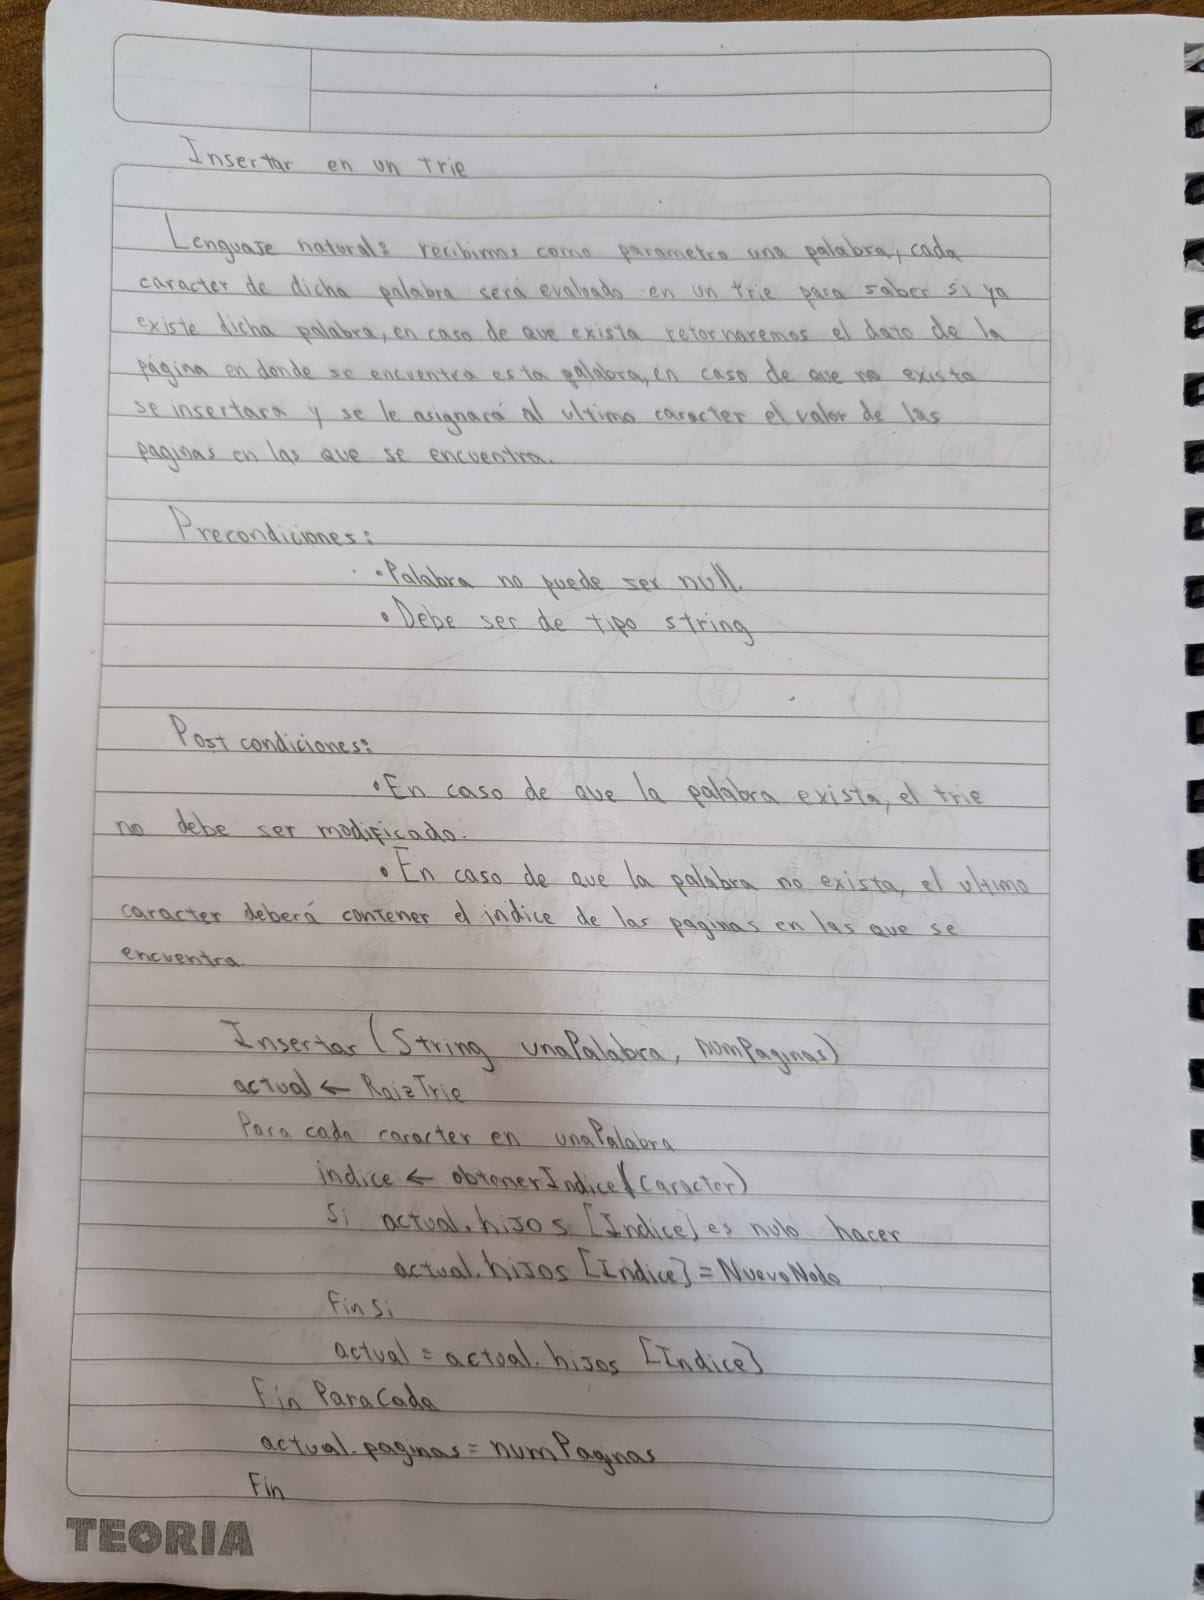 Insertar en un trie
Lenguaje natural: recibimos como parametro una palabra, cada
caracter de dicha palabra será evaluado en un trie para saber si ya
existe dicha palabra, en caso de que exista retornaremos el dato de la
página en donde se encuentra esta palabra, en caso de que no exista
se insertara y se le asignará al ultimo caracter el valor de las
paginas en las que se encuentra.
Precondiciones:
• Palabra no puede ser null.
• Debe ser de tipo string
Post condiciones:
• En caso de que la palabra exista, el trie
no debe ser modificado.
• En caso de que la palabra no exista, el ultimo
caracter deberá contener el indice de las paginas en las que se
encuentra.
Insertar (String unaPalabra, numPaginas)
actual ← RaizTrie
Para cada caracter en unaPalabra
indice ← obtenerIndice(Caracter)
Si actual.hijos [Indice] es nulo hacer
actual.hijos [Indice] = NuevoNodo
Fin Si
actual = actual.hijos [Indice]
Fin ParaCada
actual.paginas = numPagnas
Fin
TEORIA